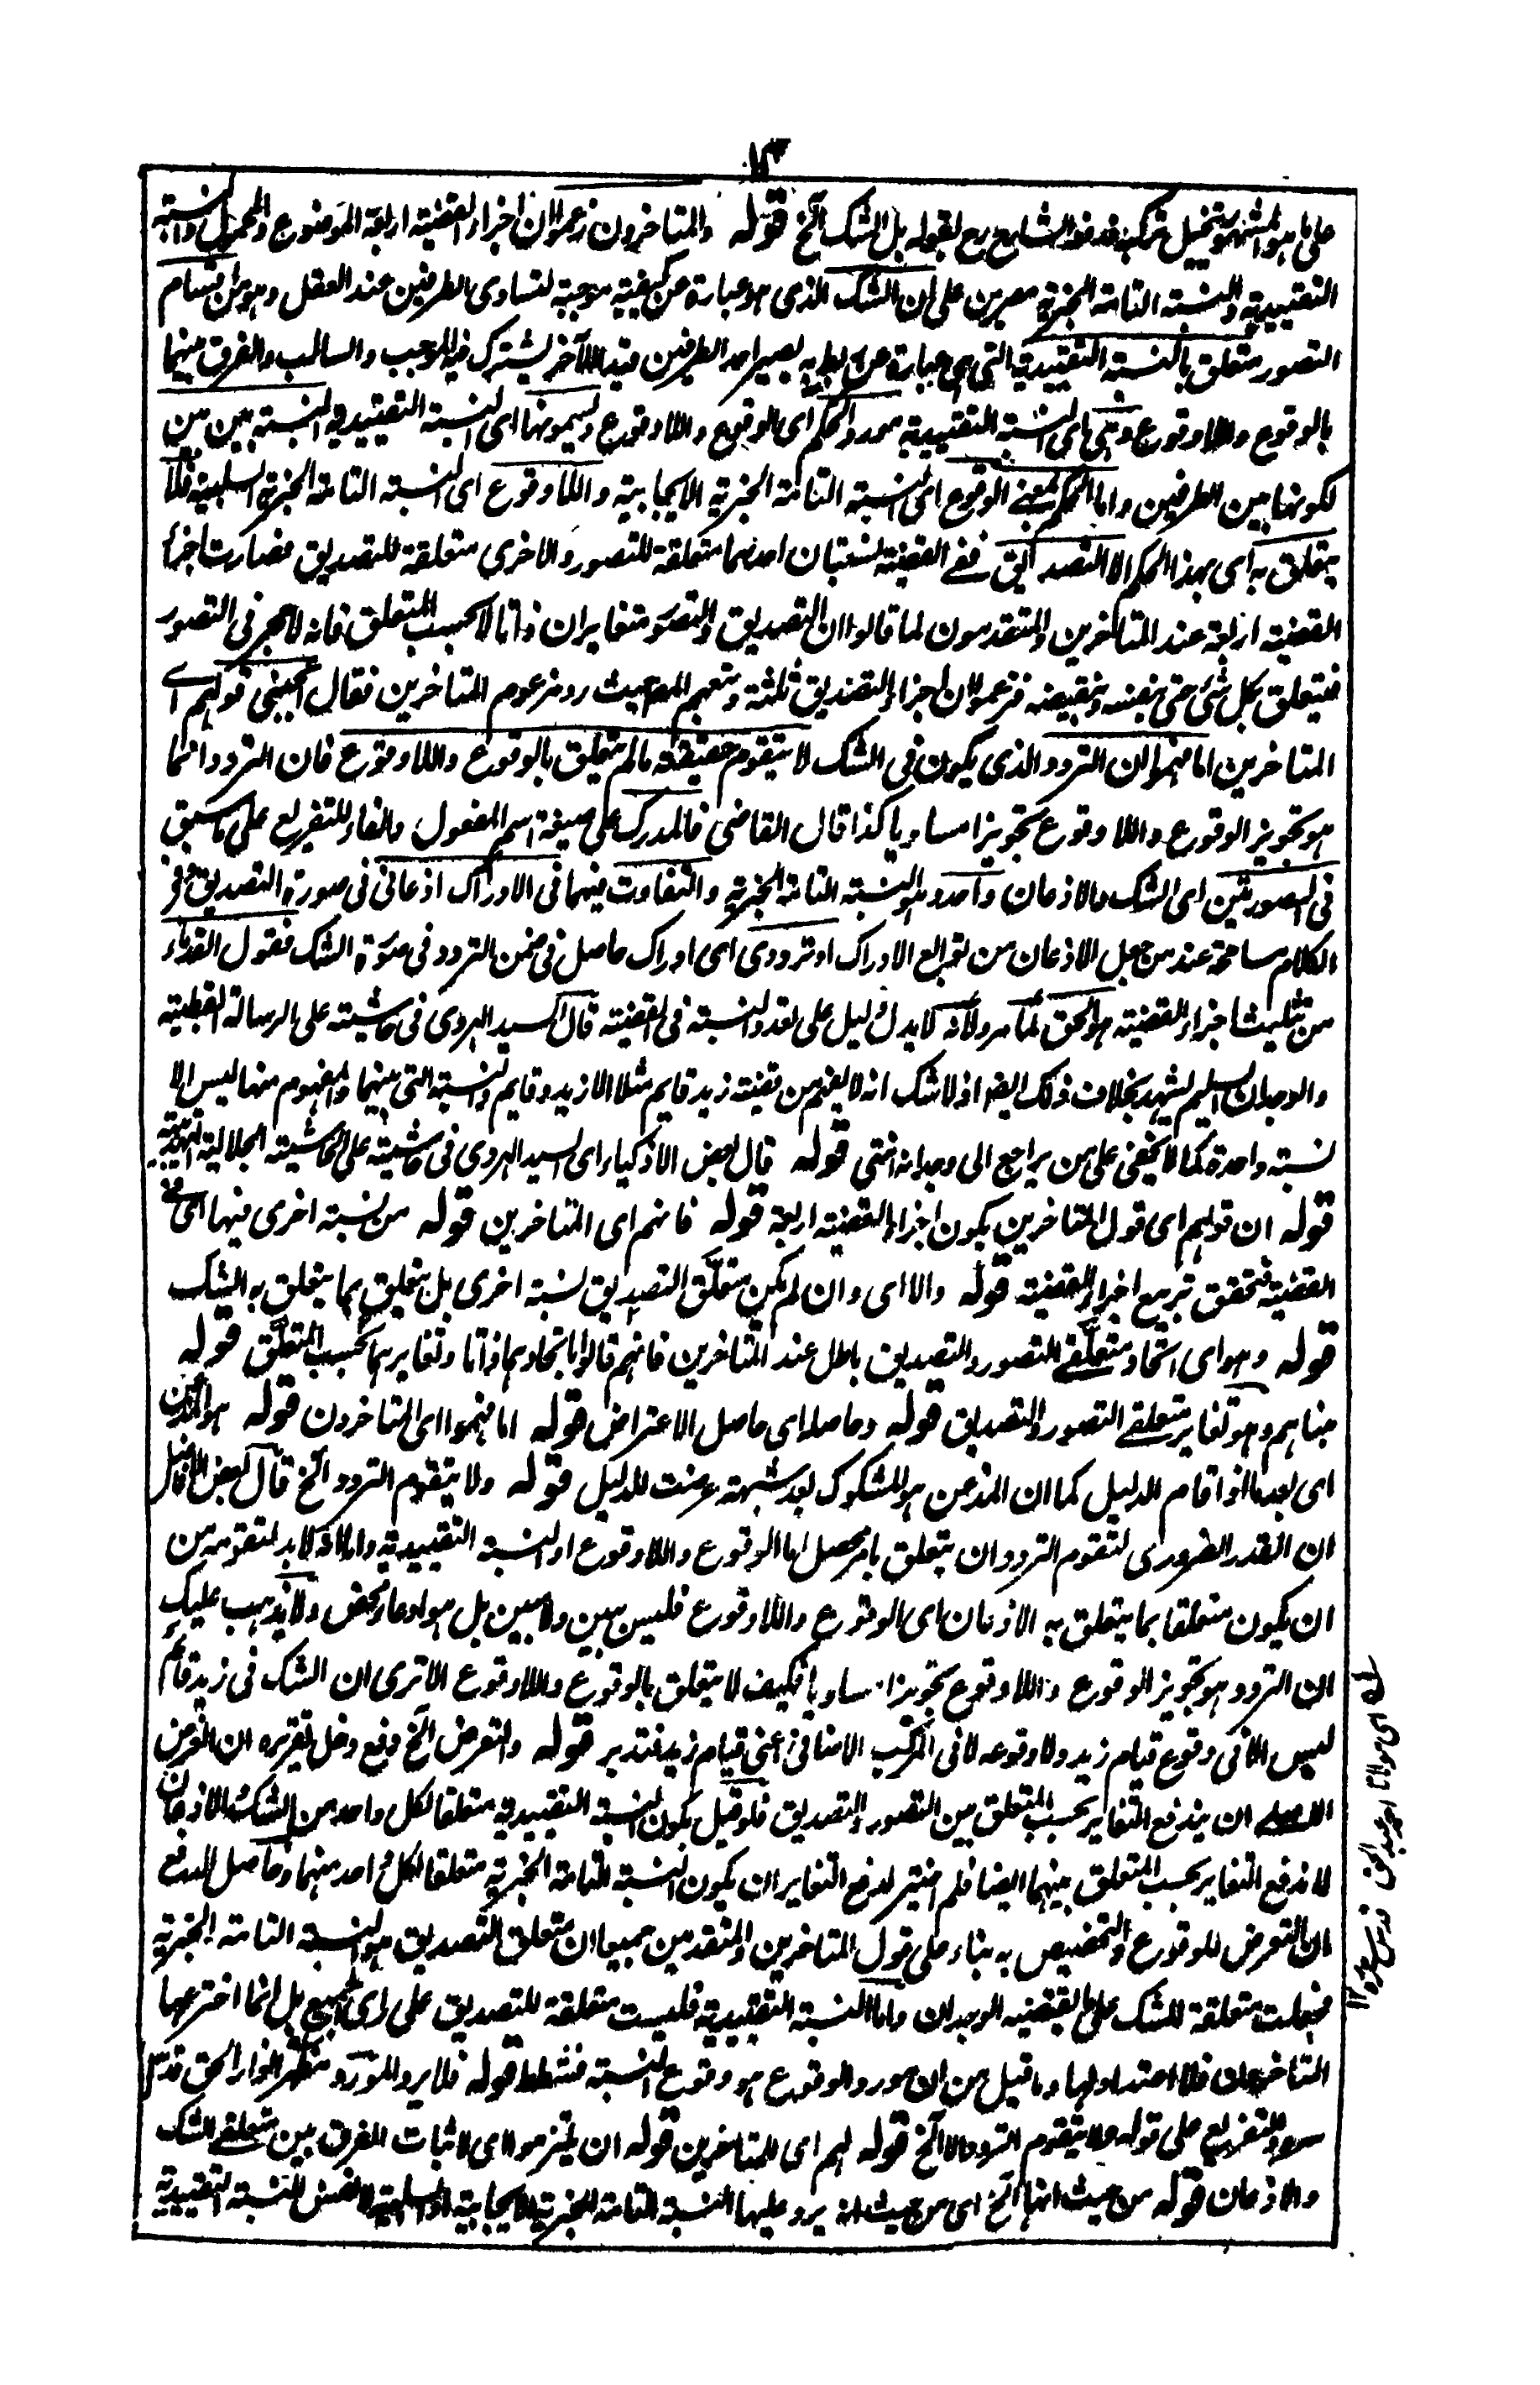 ١٣
على ما هو المشهور تخييل تركيبه فدفعه الشارح رح بقوله بل الشك آلخ قوله والمتاخرون زعموا ان اجزاء القضية اربعة الموضوع والمحمول والنسبة
التقييدية والنسبة التامة الخبرية مصرين على ان الشك الذى هو عبارة عن كيفية موجبة لتساوى الطرفين عند العقل وهو من اقسام
التصور متعلق بالنسبة التقييدية التى هى عبارة عن ربط به يصير احد الطرفين قيدا للآخر يشترك فيه الموجب والسالب والفرق بينهما
بالوقوع واللاوقوع وهى اى النسبة التقييدية مورد الحكم اى الوقوع واللاوقوع ويسمونها اى النسبة التقييدية النسبة بين بين
لكونها بين الطرفين واما الحكم بمعنى الوقوع اى النسبة التامة الخبرية الايجابية واللاوقوع اى النسبة التامة الخبرية السلبية فلا
يتعلق به اى بهذا الحكم الا التصديق ففى القضية نسبتان احدهما متعلقة للتصور والاخرى متعلقة للتصديق فصارت اجزاء
القضية اربعة عند المتاخرين والمتقدمون لما قالوا ان التصديق والتصور متغايران ذاتا لا بحسب المتعلق فانه لا حجر فى التصور
فيتعلق بكل شئ حتى بنفسه ونقيضه فزعموا ان اجزاء التصديق ثلثة وتبعهم المص حيث رد مزعوم المتاخرين فقال اعجبنى قولهم اے
المتاخرين اما فهموا ان التردد الذى يكون فى الشك لا يتقوم حقيقته مالم يتعلق بالوقوع واللاوقوع فان التردد انما
هو تجويز الوقوع واللاوقوع تجويزا مساويا كذا قال القاضى فالمدرك على صيغة اسم المفعول والفاء للتفريع على ما سبق
فى الصورتين اى الشك والاذعان واحد وهو النسبة التامة الخبرية والتفاوت بينهما فى الادراك اذعانى فى صورة التصديق وفى
الكلام مسامحة عند من جعل الاذعان من توابع الادراك او ترددى اى ادراك حاصل فى ضمن التردد فى صورة الشك فقول القدماء
من تثليث اجزاء القضية هو الحق لما مر ولانه لا يدل دليل على تعدد النسبة فى القضية قال السيد الهروى فى حاشيته على الرسالة القطبية
والوجدان السليم يشهد بخلاف ذلك ايضا اذ لا شك انه لا يفهم من قضية زيد قايم مثلا الا زيد وقايم والنسبة التى بينهما والمفهوم منها ليس الا
نسبة واحدة كما لا يخفى على من يراجع الى وجدانه انتهى قوله قال بعض الاذكياء اى السيد الهروى فى حاشيته على الحاشية الجلالية التهذيبية
قوله ان قولهم اى قول المتاخرين بكون اجزاء القضية اربعة قوله فانهم اى المتاخرين قوله من نسبة اخرى فيها اى فى
القضية فتحقق تربيع اجزاء القضية قوله والا اى وان لم يكن متعلق التصديق نسبة اخرى بل يتعلق بما يتعلق به الشك
قوله وهو اى اتحاد متعلقے التصور والتصديق باطل عند المتاخرين فانهم قالوا باتحادهما ذاتا وتغايرهما بحسب المتعلق قوله
مبناهم وهو تغاير متعلقے التصور والتصديق قوله وحاصله اى حاصل الاعتراض قوله اما فهموا اى المتاخرون قوله هو المذعن
اى بعد ما اذا قام الدليل كما ان المذعن هو المشكوك بعد شبهة عرضت للدليل قوله ولا يتقوم التردد آلخ قال بعض الافاضل
ان القدر الضرورى لتقوم التردد ان يتعلق بامر محصل اما الوقوع واللاوقوع او النسبة التقييدية واما انه لابد لتقومه من
ان يكون متعلقا بما يتعلق به الاذعان اى الوقوع واللاوقوع فليس ببين ولا مبين بل هو ادعاء محض ولا يذهب عليك
ان التردد هو تجويز الوقوع واللاوقوع تجويزا مساويا فكيف لا يتعلق بالوقوع واللاوقوع الا ترى ان الشك فى زيد قائم
ليس الا فى وقوع قيام زيد ولا وقوعه لا فى المركب الاضافى اعنى قيام زيد فتدبر قوله والتعرض آلخ دفع دخل تقريره ان الغرض
الاصلے ان يندفع التغاير بحسب المتعلق بين التصور والتصديق فلو قيل بكون النسبة التقييدية متعلقا لكل واحد من الشك والاذعان
لاندفع التغاير بحسب المتعلق بينهما ايضا فلم اختير لدفع التغاير ان يكون النسبة التامة الخبرية متعلقا لكل واحد منهما وحاصل الدفع
ان التعرض للوقوع والتخصيص به بناء على قول المتاخرين والمتقدمين جميعا ان متعلق التصديق هو النسبة التامة الخبرية
فجعلت متعلقة للشك على ما يقتضيه الوجدان واما النسبة التقييدية فليست متعلقة للتصديق على راى الجميع بل انما اخترعها
المتاخرون فلا اعتداد لها وما قيل من ان مورد الوقوع هو وقوع النسبة فشطط قوله فلا يرد المورد مظهر انوار الحق قدس
سره والتفريع على قوله ولا يتقوم التردد الا آلخ قوله لهم اى للمتاخرين قوله ان يلتزموا اى لاثبات الفرق بين متعلقے الشك
والاذعان قوله من حيث انها آلخ اى من حيث انه يرد عليها النسبة التامة الخبرية الايجابية او السلبية لا نفس النسبة التقييدية
له اى مولانا احمد عبد الحق قدس سره ١٢